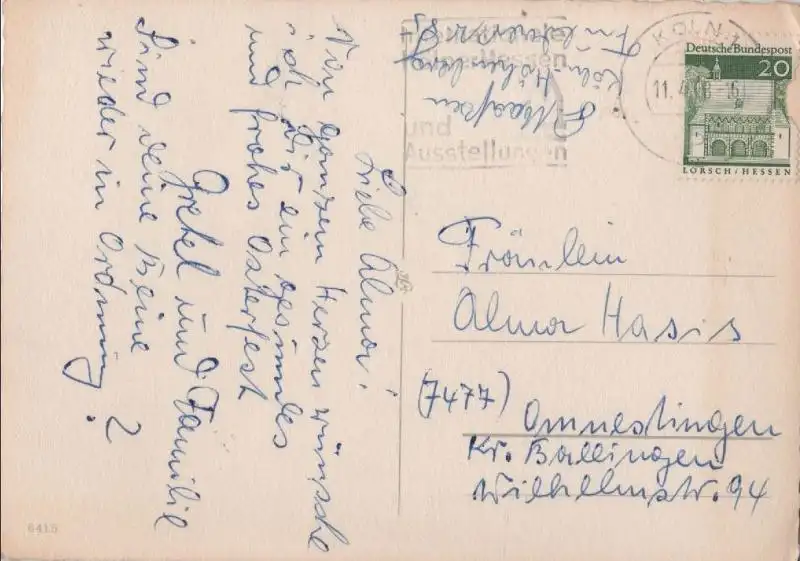 Liebe Alma!
Von ganzem Herzen wünsche
ich Dir ein gesundes
und frohes Osterfest
Gretel und Familie
Sind deine Beine
wieder in Ordnung?
Köln Höhenberg
KÖLN
11.4.68-16
und
Ausstellungen
Deutsche Bundespost
20
LORSCH/HESSEN
Fräulein
Alma Hasis
(7477) Onmestingen
Kr. Ballingen
Wilhelmstr. 94
6415